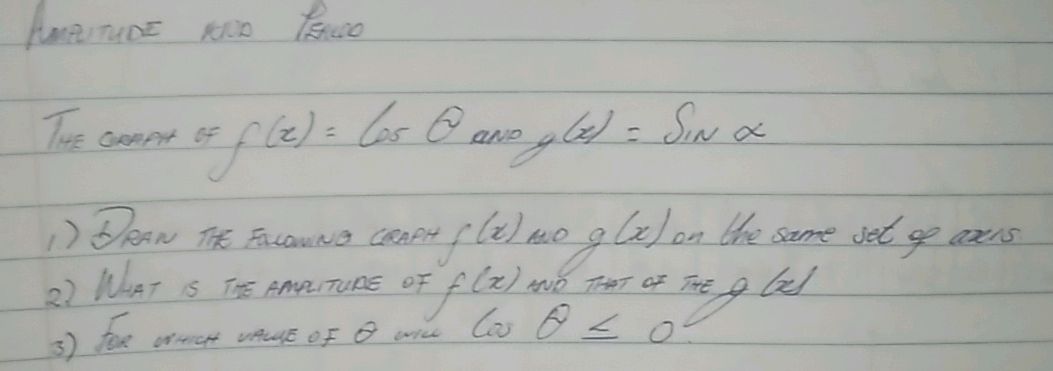 AMPLITUDE AND PERIOD
THE GRAPH OF f(x) = Cos θ AND g(x) = SIN α
1) DRAW THE FOLLOWING GRAPH f(x) AND g(x) on the same set of axis.
2) WHAT IS THE AMPLITUDE OF f(x) AND THAT OF THE g(x)
3) FOR WHICH VALUE OF θ WILL Cos θ ≤ 0.